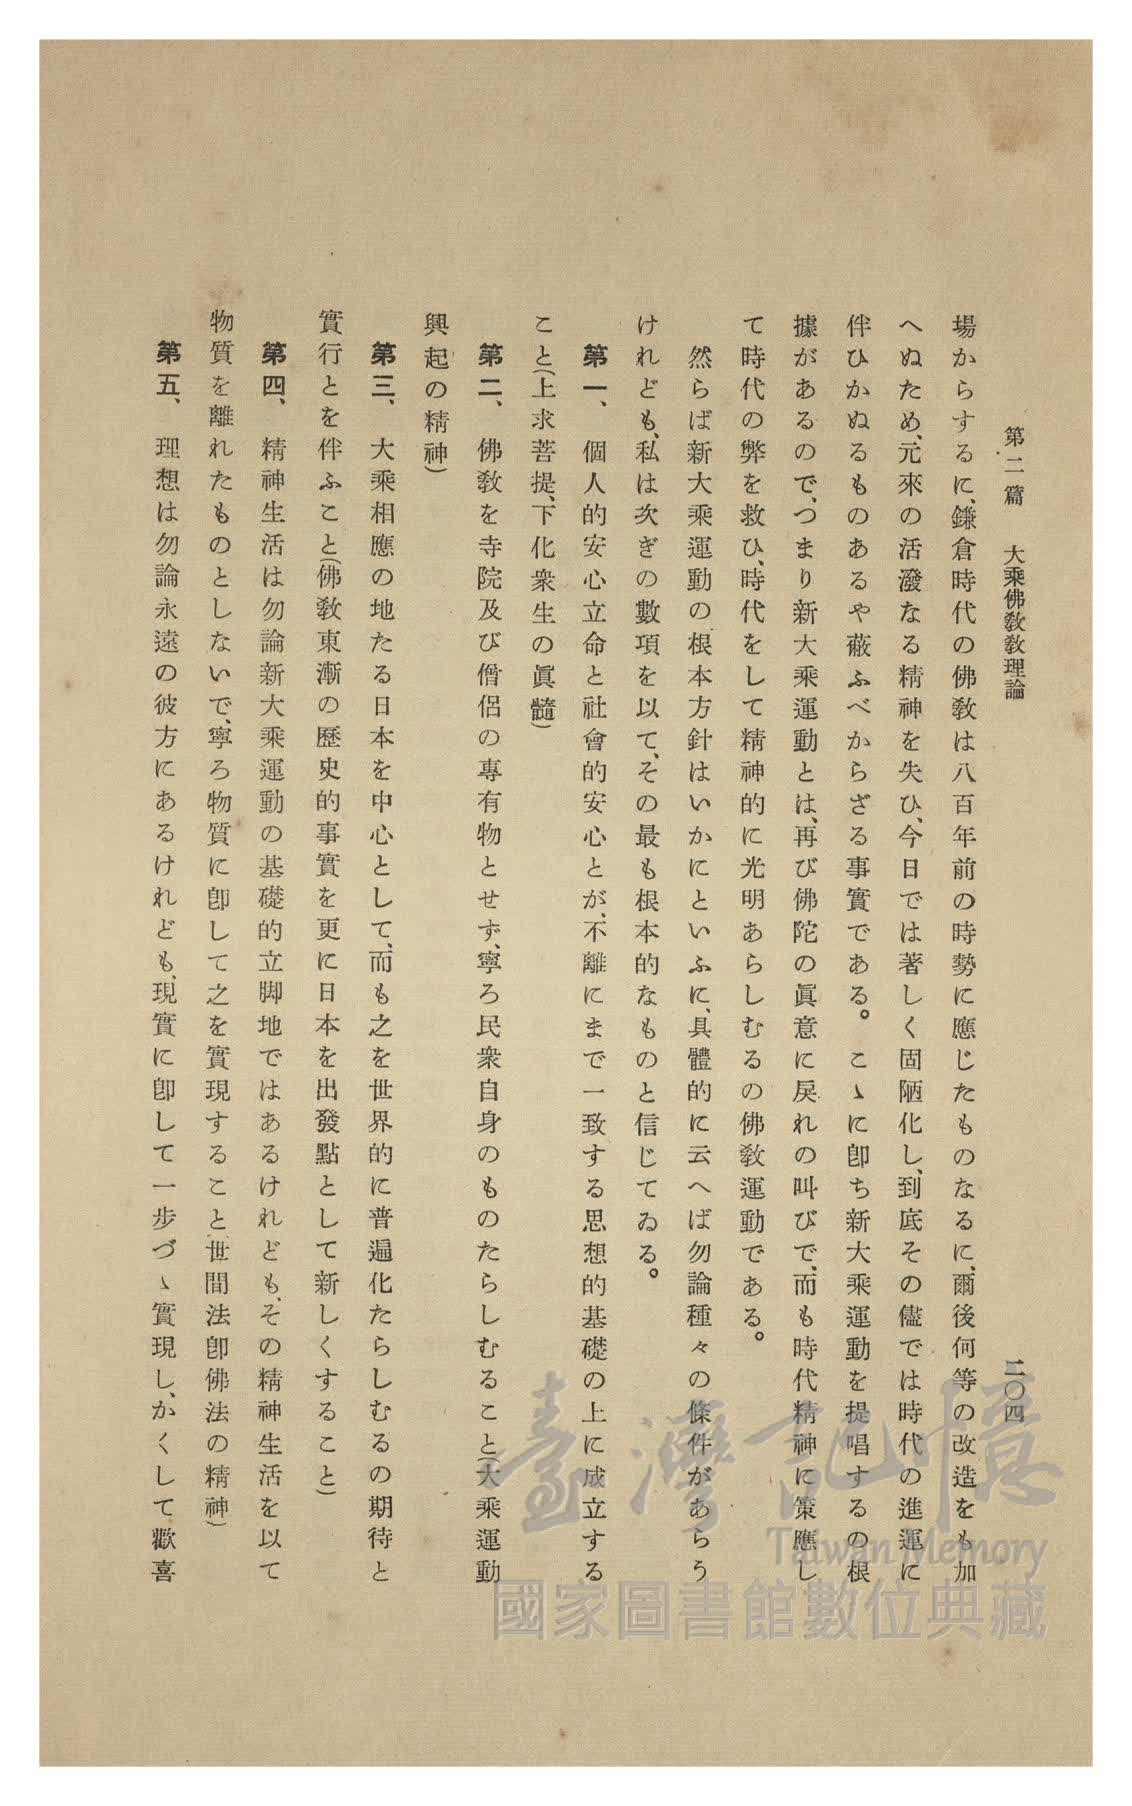 第二篇　大乘佛敎敎理論
二〇四
場からするに、鎌倉時代の佛敎は八百年前の時勢に應じたものなるに、爾後何等の改造をも加
へぬため、元來の活潑なる精神を失ひ、今日では著しく固陋化し、到底その儘では時代の進運に
伴ひかぬるものあるや蔽ふべからざる事實である。こゝに卽ち新大乘運動を提唱するの根
據があるので、つまり新大乘運動とは、再び佛陀の眞意に戾れの叫びで、而も時代精神に策應し
て時代の弊を救ひ、時代をして精神的に光明あらしむるの佛敎運動である。
然らば新大乘運動の根本方針はいかにといふに、具體的に云へば勿論種々の條件があらう
けれども、私は次ぎの數項を以て、その最も根本的なものと信じてゐる。
第一、　個人的安心立命と社會的安心とが、不離にまで一致する思想的基礎の上に成立する
こと(上求菩提、下化衆生の眞髓)
第二、　佛敎を寺院及び僧侶の專有物とせず、寧ろ民衆自身のものたらしむること(大乘運動
興起の精神)
第三、　大乘相應の地たる日本を中心として、而も之を世界的に普遍化たらしむるの期待と
實行とを伴ふこと(佛敎東漸の歷史的事實を更に日本を出發點として新しくすること)
第四、　精神生活は勿論新大乘運動の基礎的立脚地ではあるけれども、その精神生活を以て
物質を離れたものとしないで、寧ろ物質に卽して之を實現すること(世間法卽佛法の精神)
第五、　理想は勿論永遠の彼方にあるけれども、現實に卽して一步づゝ實現し、かくして歡喜
臺灣記憶
Taiwan Memory
國家圖書館數位典藏